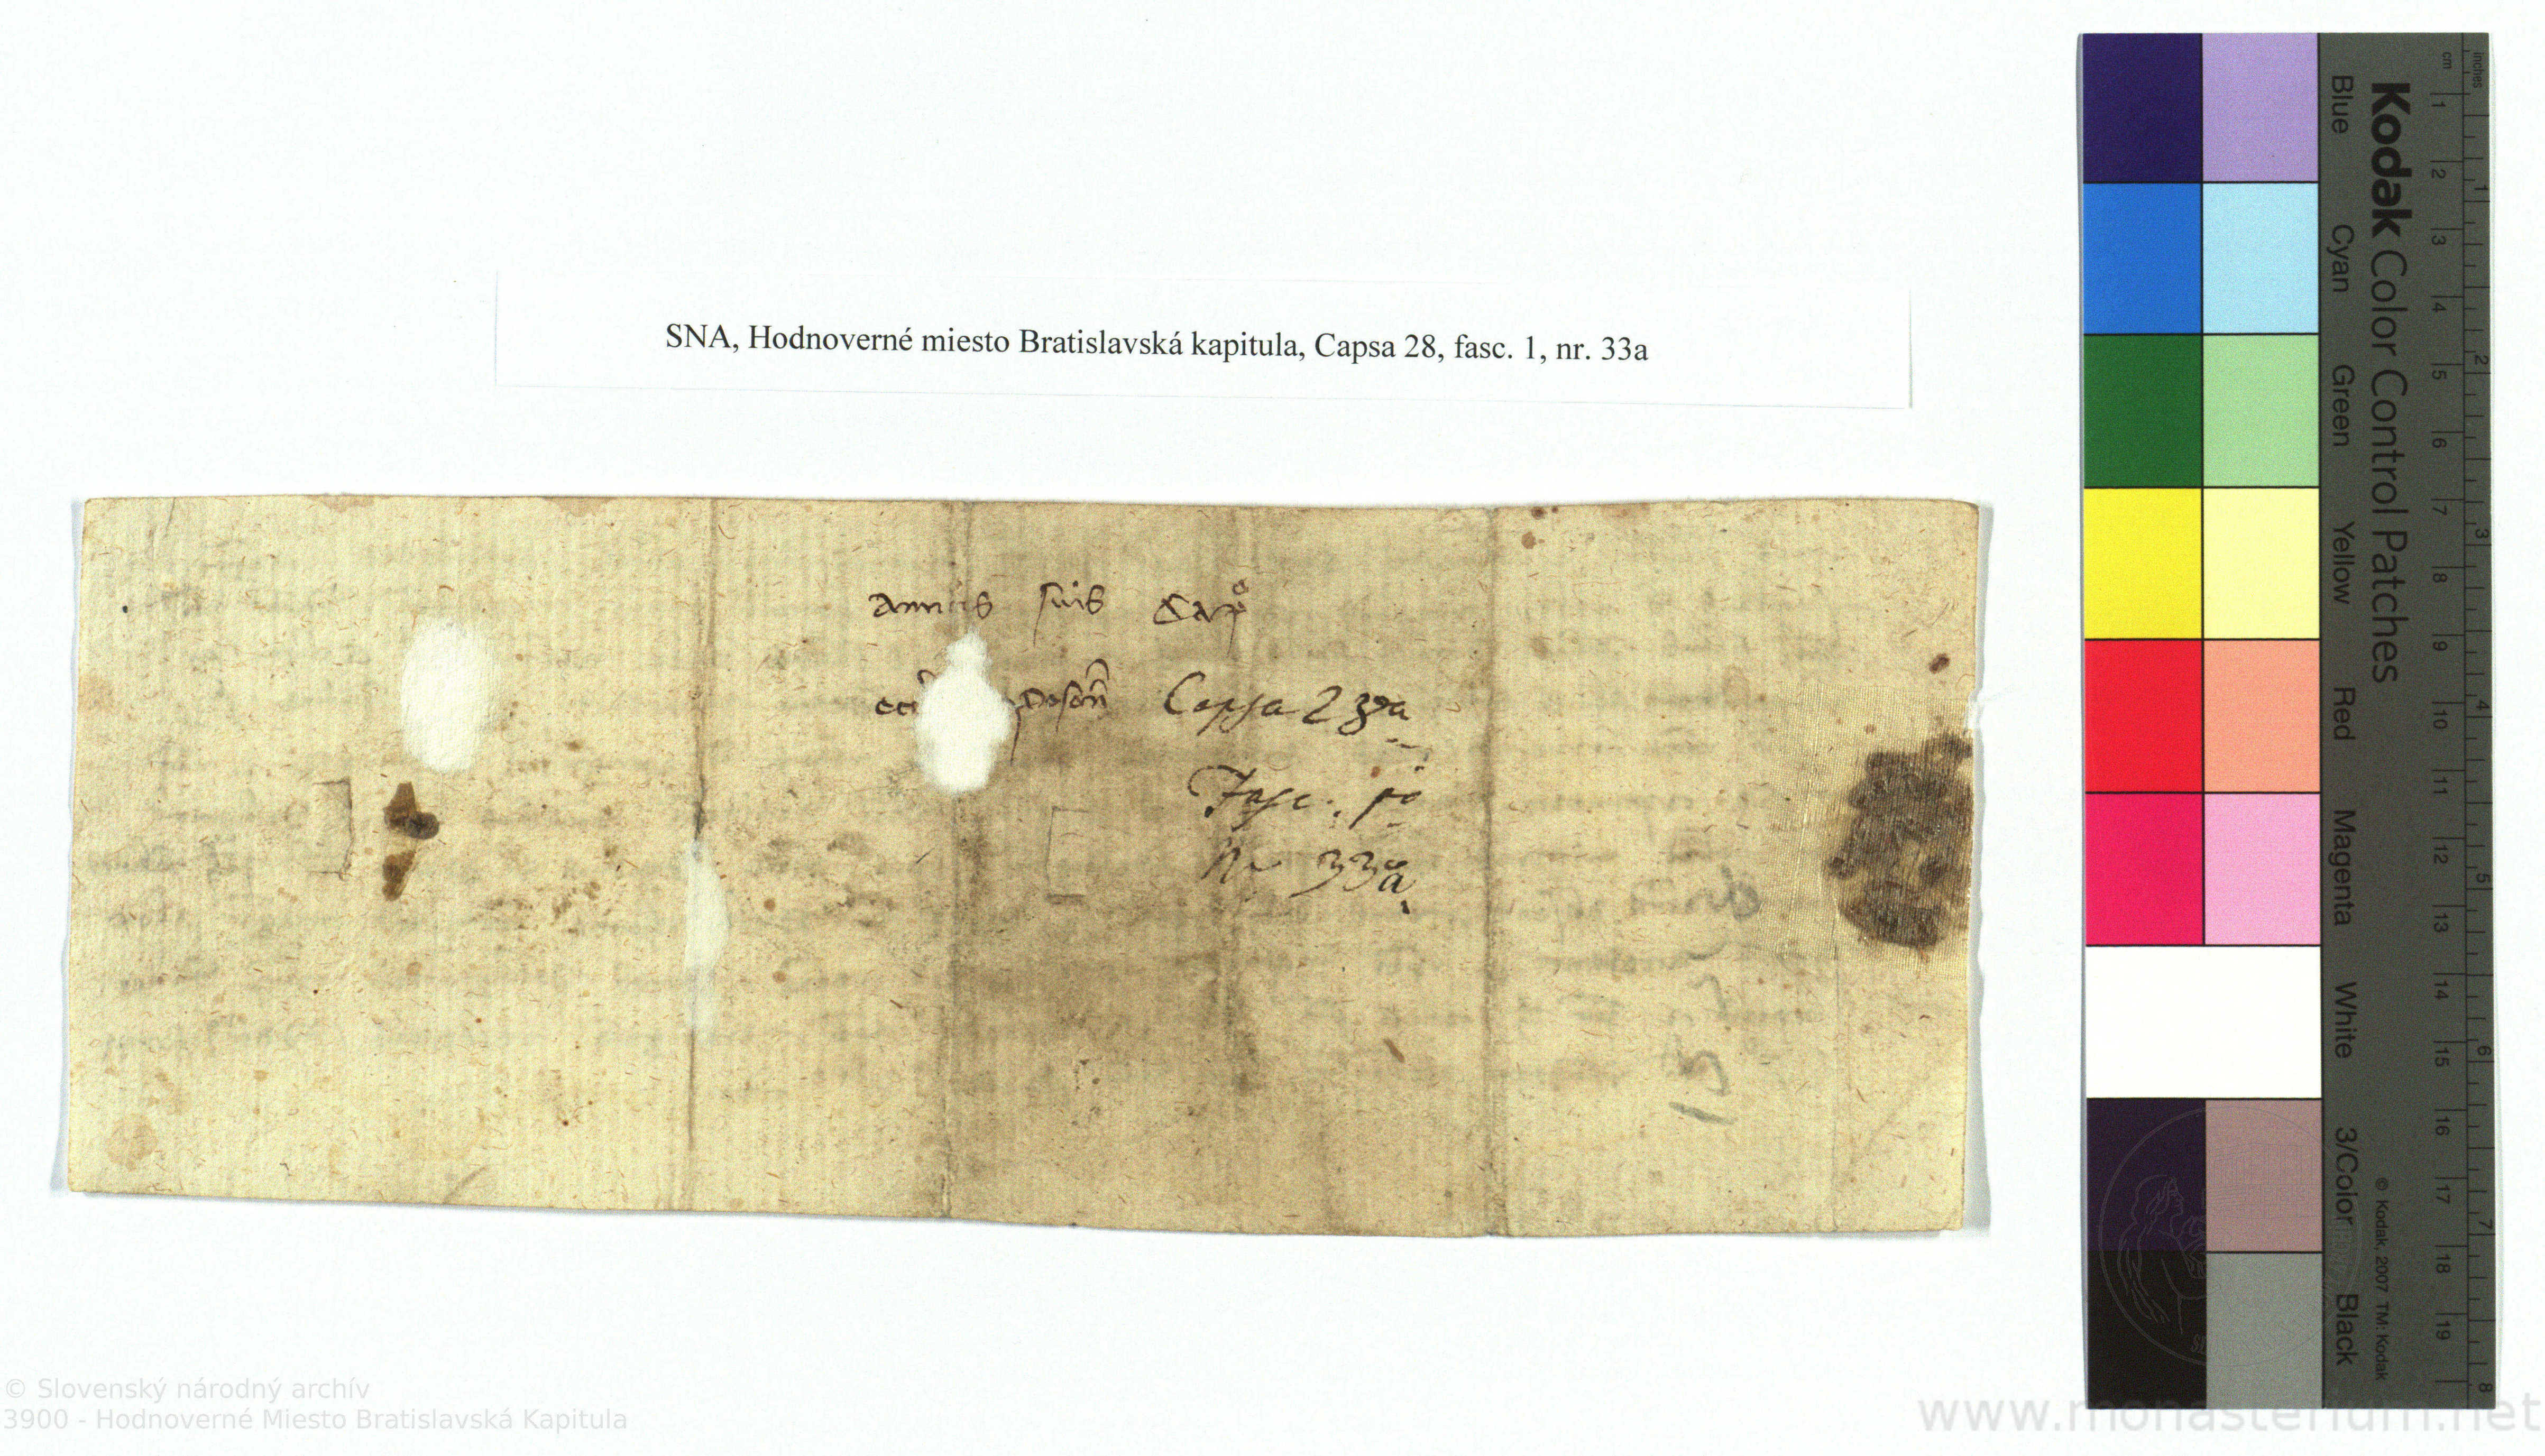 SNA, Hodnoverné miesto Bratislavská kapitula, Capsa 28, fasc. 1, nr. 33a
amicis suis Cap
posoñ Capsa 28va
Fasc. po
Nr 33a
© Slovenský národný archív
3900 - Hodnoverné Miesto Bratislavská Kapitula
www.monasterium.net
Kodak Color Control Patches
Blue Cyan Green Yellow Red Magenta White 3/Color Black
© Kodak, 2007 TM: Kodak
cm 1 2 3 4 5 6 7 8 9 10 11 12 13 14 15 16 17 18 19
inches 1 2 3 4 5 6 7 8